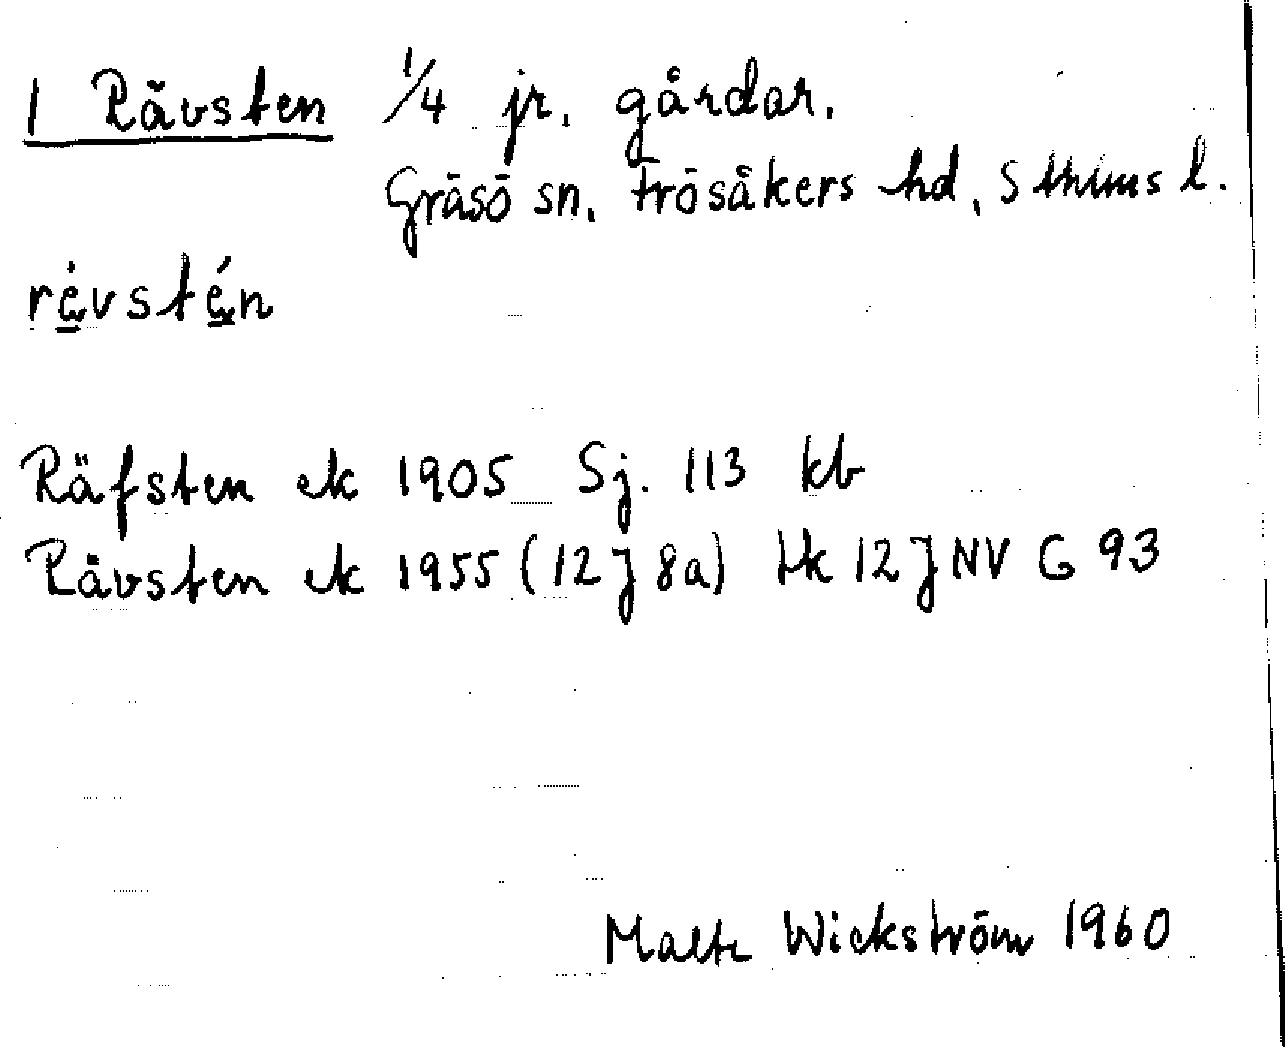 1 Rävsten 1/4 jr. gårdar.
Gräsö sn. Frösåkers hd, Sthlms l.
révstén
Räfsten ek 1905 Sj. 113 kb
Rävsten ek 1955 (12 J 8a) Hk 12 J NV G 93
Malte Wickström 1960